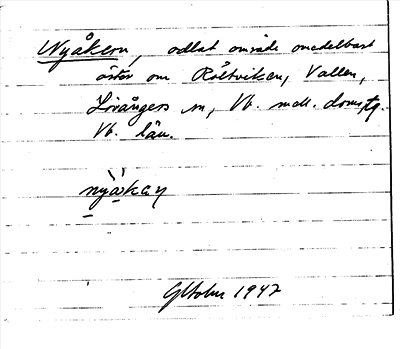 Nyåkern, odlat område omedelbart
öster om Röltviken, Vallen,
Lövångers sn, Vb. mell. doms,tg.
Vb. län.
nyåkaṇ
1947